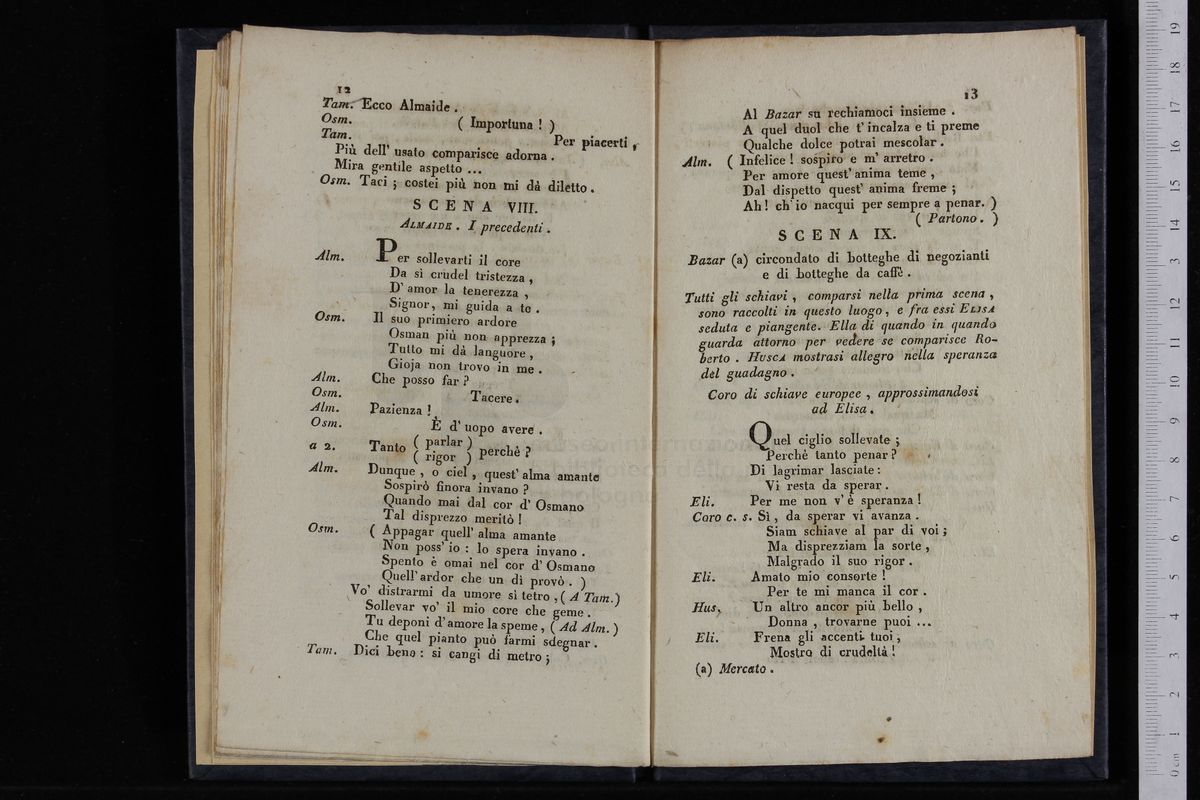 12
Tam. Ecco Almaide .
Osm. ( Importuna ! )
Tam. Per piacerti ,
Più dell' usato comparisce adorna .
Mira gentile aspetto ...
Osm. Taci ; costei più non mi dà diletto .
SCENA VIII.
ALMAIDE . I precedenti .
Alm. Per sollevarti il core
Da sì crudel tristezza ,
D' amor la tenerezza ,
Signor, mi guida a te .
Osm. Il suo primiero ardore
Osman più non apprezza ;
Tutto mi dà languore ,
Gioja non trovo in me .
Alm. Che posso far ?
Osm. Tacere .
Alm. Pazienza !
Osm. È d' uopo avere .
a 2. Tanto ( parlar ) perchè ?
( rigor )
Alm. Dunque , o ciel , quest' alma amante
Sospirò finora invano ?
Quando mai dal cor d' Osmano
Tal disprezzo meritò !
Osm. ( Appagar quell' alma amante
Non poss' io : lo spera invano .
Spento è omai nel cor d' Osmano
Quell' ardor che un dì provò . )
Vo' distrarmi da umore sì tetro , ( A Tam. )
Sollevar vo' il mio core che geme .
Tu deponi d' amore la speme , ( Ad Alm. )
Che quel pianto può farmi sdegnar .
Tam. Dici bene : si cangi di metro ;
13
Al Bazar su rechiamoci insieme .
A quel duol che t' incalza e ti preme
Qualche dolce potrai mescolar .
Alm. ( Infelice ! sospiro e m' arretro .
Per amore quest' anima teme ,
Dal dispetto quest' anima freme ;
Ah ! ch' io nacqui per sempre a penar. )
( Partono . )
SCENA IX.
Bazar (a) circondato di botteghe di negozianti
e di botteghe da caffè .
Tutti gli schiavi , comparsi nella prima scena ,
sono raccolti in questo luogo , e fra essi ELISA
seduta e piangente. Ella di quando in quando
guarda attorno per vedere se comparisce Ro-
berto . HUSCA mostrasi allegro nella speranza
del guadagno .
Coro di schiave europee , approssimandosi
ad Elisa .
Quel ciglio sollevate ;
Perchè tanto penar ?
Di lagrimar lasciate :
Vi resta da sperar .
Eli. Per me non v' è speranza !
Coro c. s. Sì , da sperar vi avanza .
Siam schiave al par di voi ;
Ma disprezziam la sorte ,
Malgrado il suo rigor .
Eli. Amato mio consorte !
Per te mi manca il cor .
Hus. Un altro ancor più bello ,
Donna , trovarne puoi ...
Eli. Frena gli accenti tuoi ,
Mostro di crudeltà !
(a) Mercato .